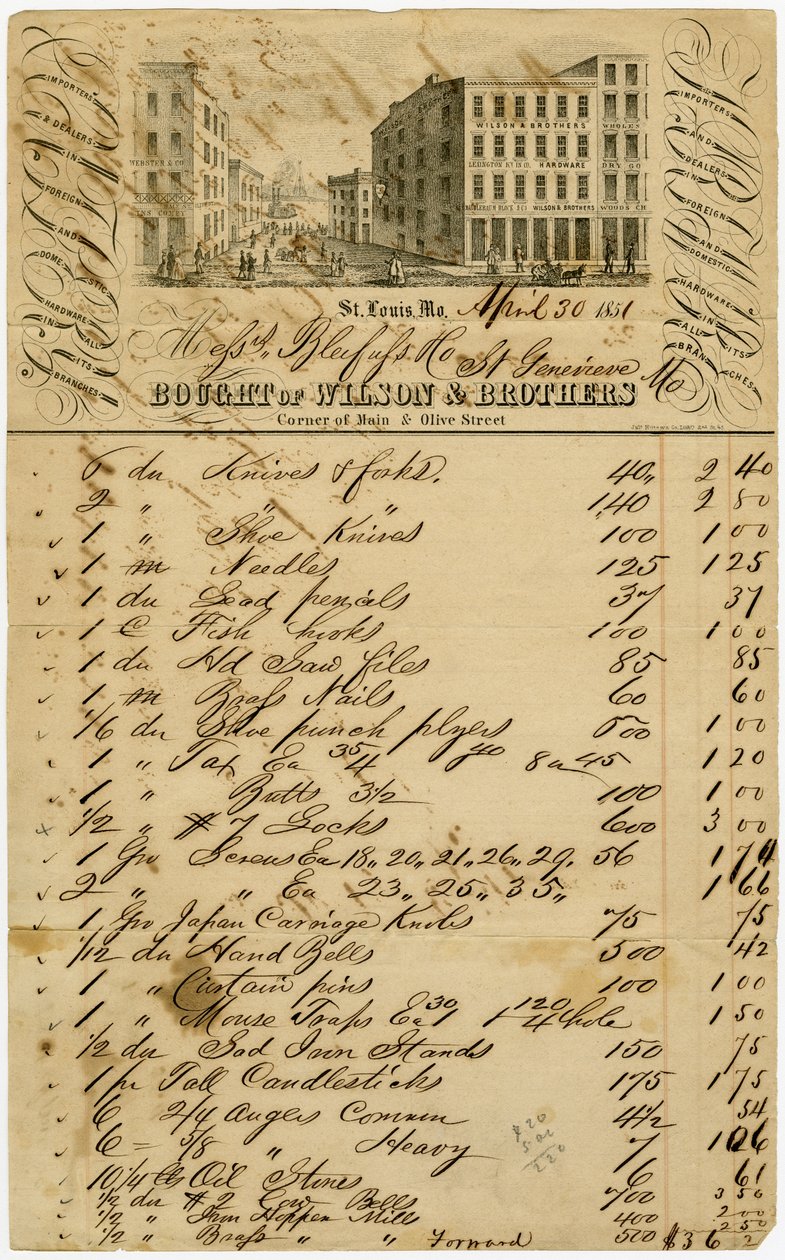 IMPORTERS
& DEALERS
IN
FOREIGN
AND
DOMESTIC
HARDWARE
IN ALL
ITS
BRANCHES
WEBSTER & CO
WILSON & BROTHERS WHOLES
HARDWARE DRY GO
WILSON & BROTHERS WOODS CH
IMPORTERS
AND
DEALERS
IN
FOREIGN
AND
DOMESTIC
HARDWARE
IN
ALL ITS
BRANCHES
St. Louis, Mo. April 30 1851
Messrs Bleifuss Ho St Genevieve Mo
BOUGHT OF WILSON & BROTHERS
Corner of Main & Olive Street
6 du Knives & forks. 40,, 2 40
2 " " " 1,40 2 80
1 " Shoe Knives 100 1 00
1 m Needles 125 1 25
1 du Lead pencils 37 37
1 C Fish hooks 100 1 00
1 du Hd Saw files 85 85
1 m Brass Nails 60 60
1/6 du Shoe punch plyers 600 1 00
1 " Tax Ea 35/4 40 8 a 45 1 20
1 " Butts 3 1/2 100 1 00
1/2 " # 7 Locks 600 3 00
1 Gro Screws Ea 18,, 20,, 21,, 26,, 29,, 56 1 74
2 " " Ea 23,, 25,, 35,, 1 66
1 Gro Japan Carriage Knobs 75 75
1/12 du Hand Bells 500 42
1 " Curtain pins 100 1 00
1 " Mouse Traps Ea 30/1 1 120/4 hole 1 50
1/2 du Sad Iron Stands 150 75
1 pr Tall Candlesticks 175 1 75
6 2/4 Augers Common 4 1/2 54
6 = 5/8 " Heavy 7 1 26
10 1/4 lbs Oil Stones 6 61
1/2 du # 2 Cow Bells 700 3 50
1/2 " Iron Hopper Mill 400 2 00
1/2 " Brass " " 500 2 50
Forward $36 2